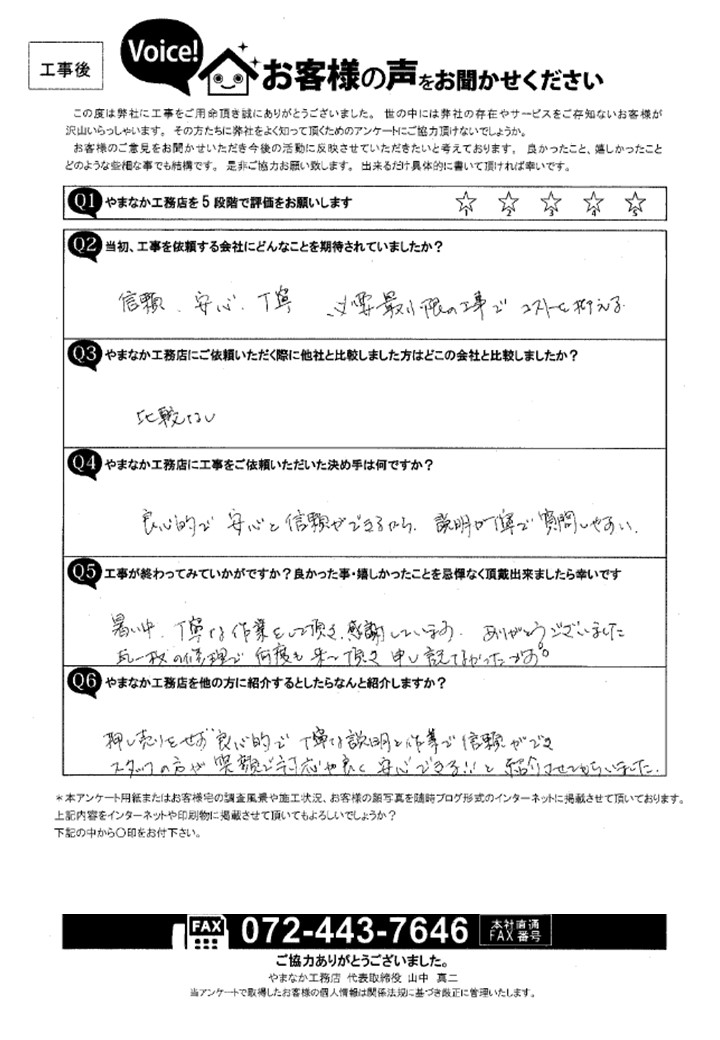 工事後
Voice!
お客様の声をお聞かせください
この度は弊社に工事をご用命頂き誠にありがとうございました。 世の中には弊社の存在やサービスをご存知ないお客様が
沢山いらっしゃいます。 その方たちに弊社をよく知って頂くためのアンケートにご協力頂けないでしょうか。
お客様のご意見をお聞かせいただき今後の活動に反映させていただきたいと考えております。 良かったこと、嬉しかったこと
どのような些細な事でも結構です。 是非ご協力お願い致します。 出来るだけ具体的に書いて頂ければ幸いです。
Q1 やまなか工務店を5段階で評価をお願いします
1 2 3 4 5
Q2 当初、工事を依頼する会社にどんなことを期待されていましたか？
信頼、安心、丁寧 必要最小限の工事で コストを抑える
Q3 やまなか工務店にご依頼いただく際に他社と比較しました方はどこの会社と比較しましたか？
比較なし
Q4 やまなか工務店に工事をご依頼いただいた決め手は何ですか？
良心的で 安心と信頼ができるから、説明が丁寧で質問しやすい。
Q5 工事が終わってみていかがですか？良かった事・嬉しかったことを忌憚なく頂戴出来ましたら幸いです
暑い中、丁寧な作業をして頂き、感謝しています。 ありがとうございました
瓦一枚の修理で 何度も来て頂き 申し訳なかったです。
Q6 やまなか工務店を他の方に紹介するとしたらなんと紹介しますか？
押し売りをせず 良心的で 丁寧な説明と作業で信頼ができ
スタッフの方が 笑顔で対応や良く 安心できる!!と 紹介させてもらいました.
＊本アンケート用紙またはお客様宅の調査風景や施工状況、お客様の顔写真を随時ブログ形式のインターネットに掲載させて頂いております。
上記内容をインターネットや印刷物に掲載させて頂いてもよろしいでしょうか？
下記の中から〇印をお付下さい。
FAX 072-443-7646 本社直通
FAX番号
ご協力ありがとうございました。
やまなか工務店 代表取締役 山中 真二
当アンケートで取得したお客様の個人情報は関係法規に基づき厳正に管理いたします。